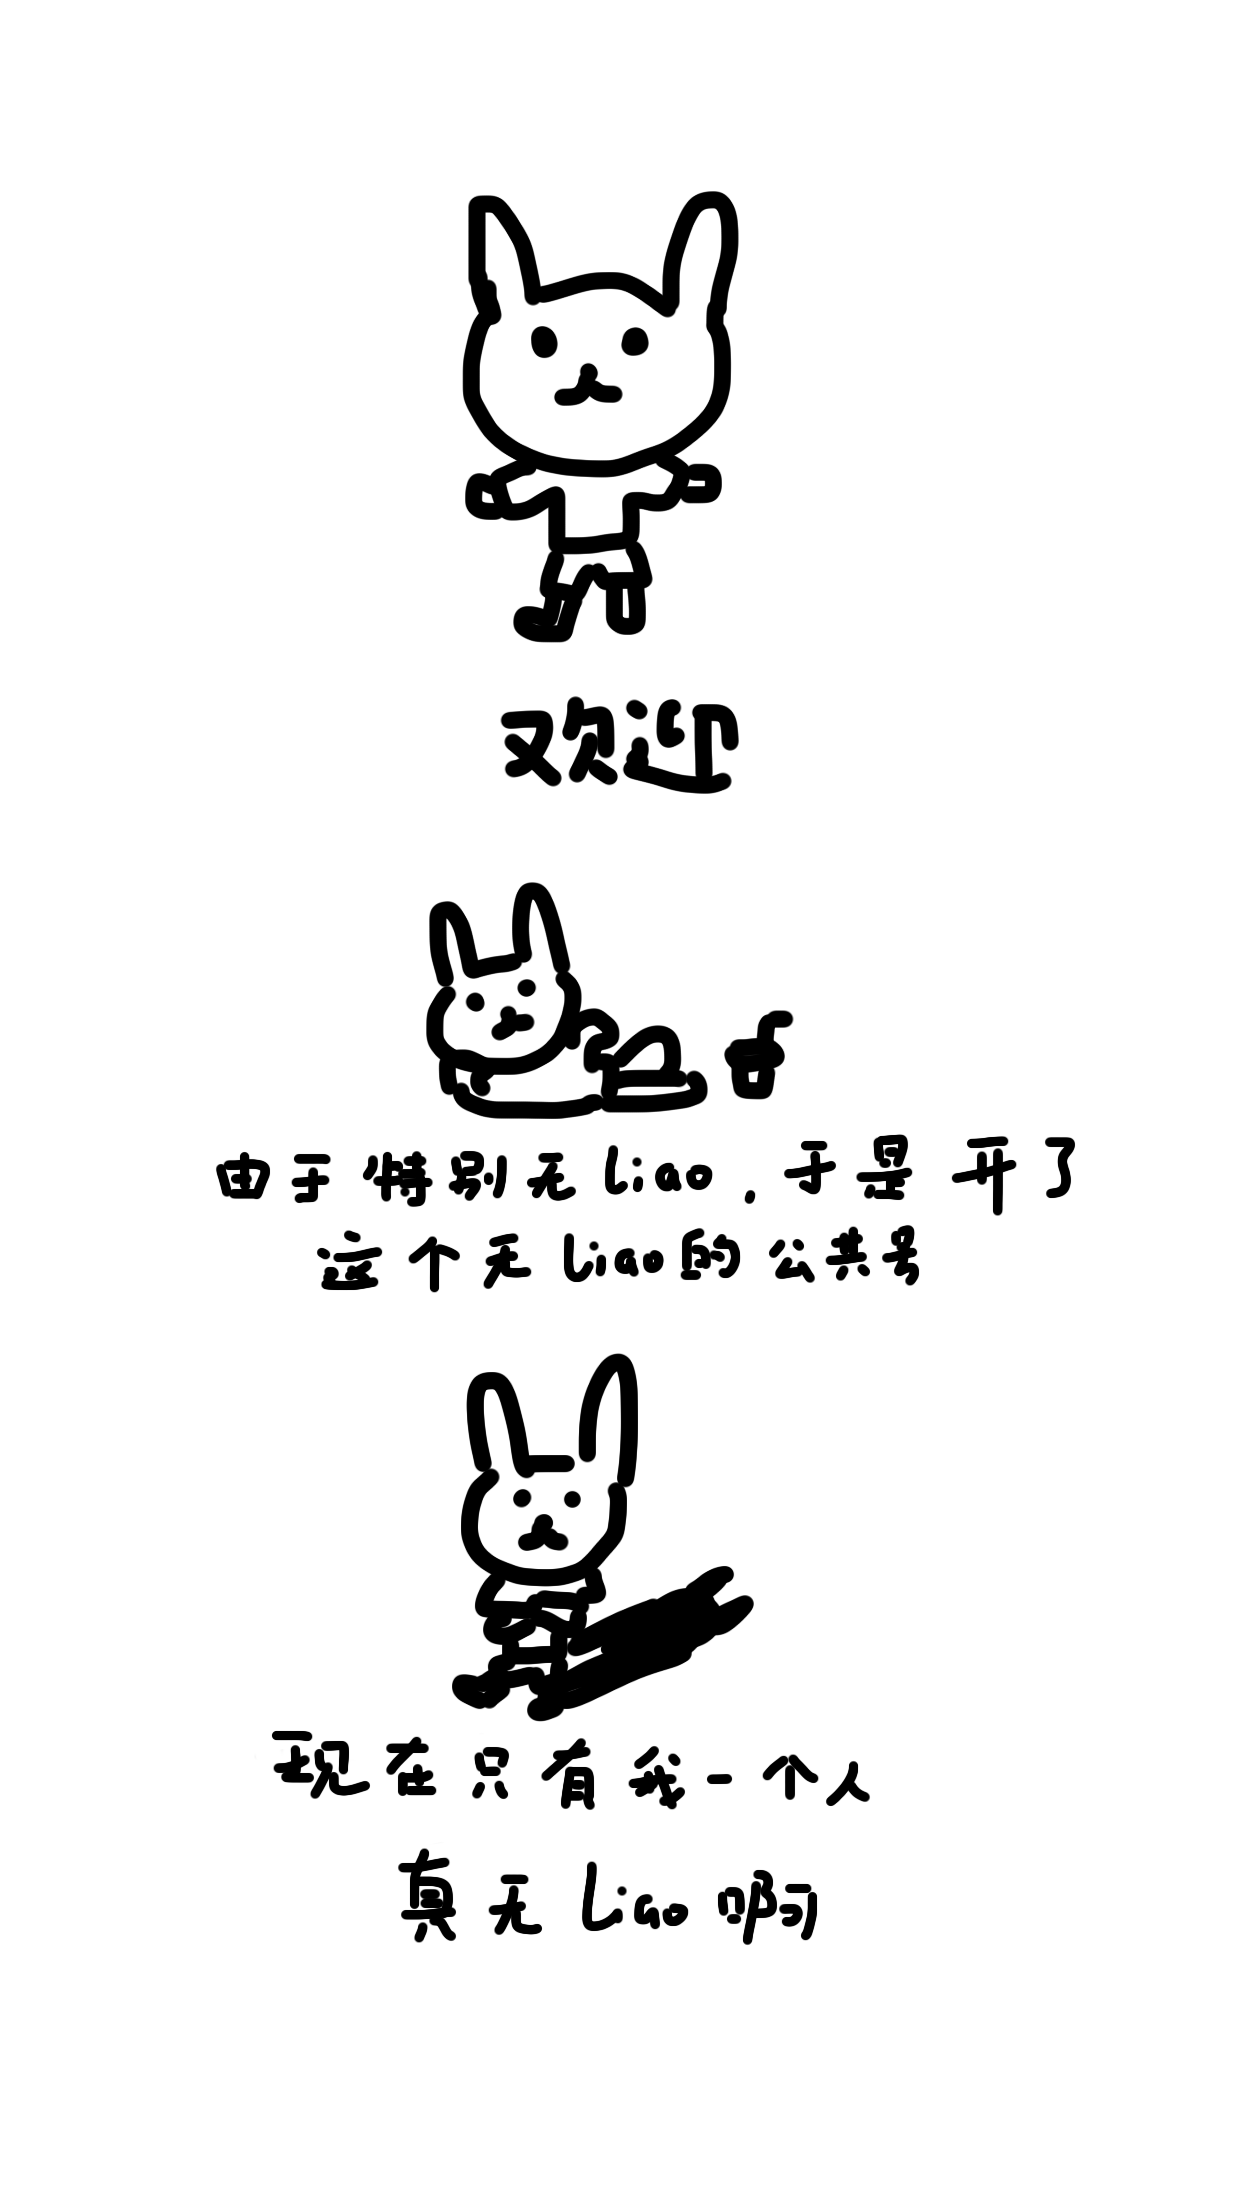 欢迎
由于特别无liao，于是开了
这个无liao的公共号
现在只有我一个人
真无liao啊